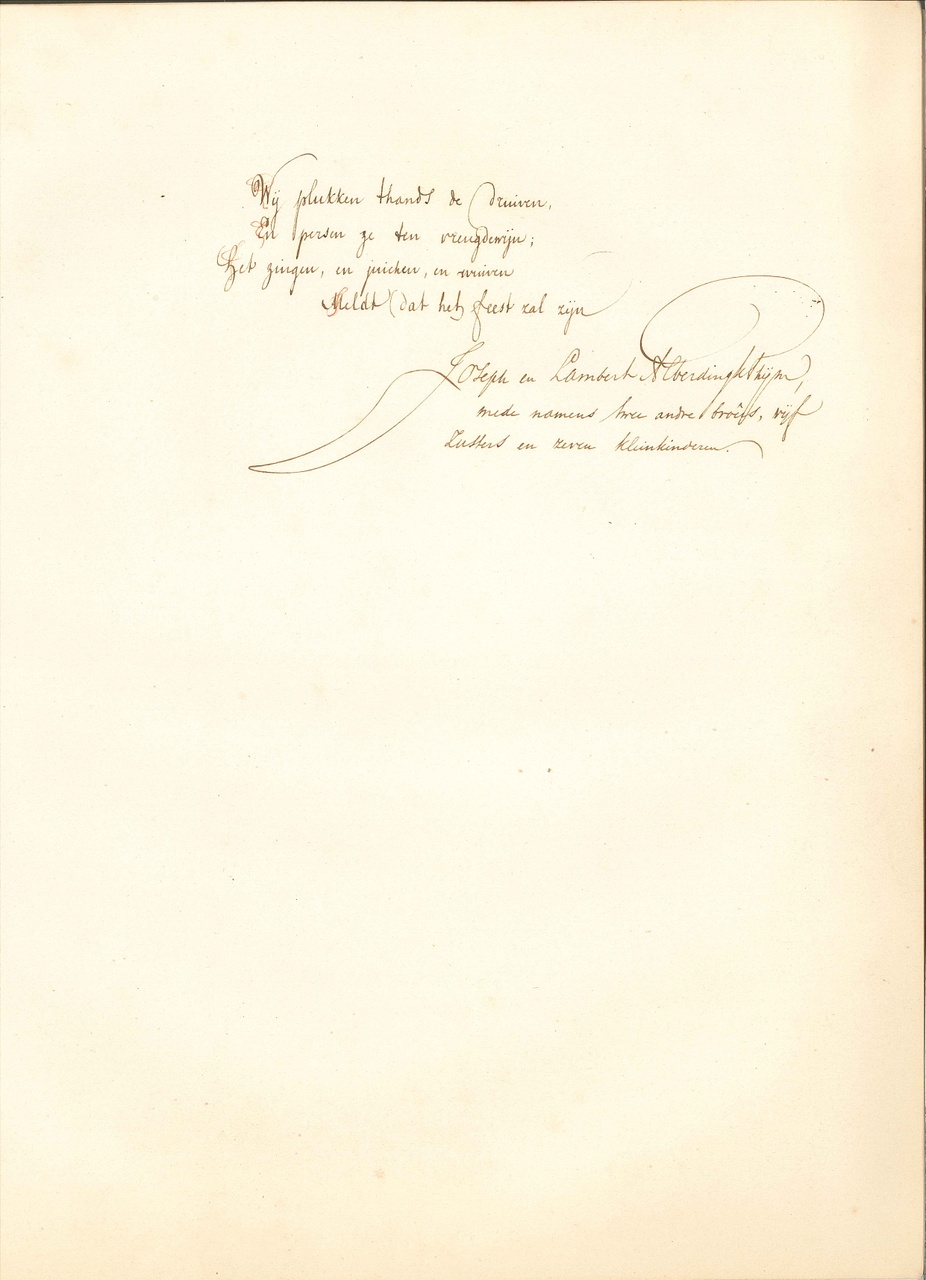 Wij plukken thands de druiven,
En persen ze ten vreugdewijn;
Het zingen, en juichen, en wuiven
Meldt dat het feest zal zijn
Joseph en Lambert Alberdingk Thijm,
mede namens twee andre broêrs, vijf
Zusters en zeven kleinkinderen.